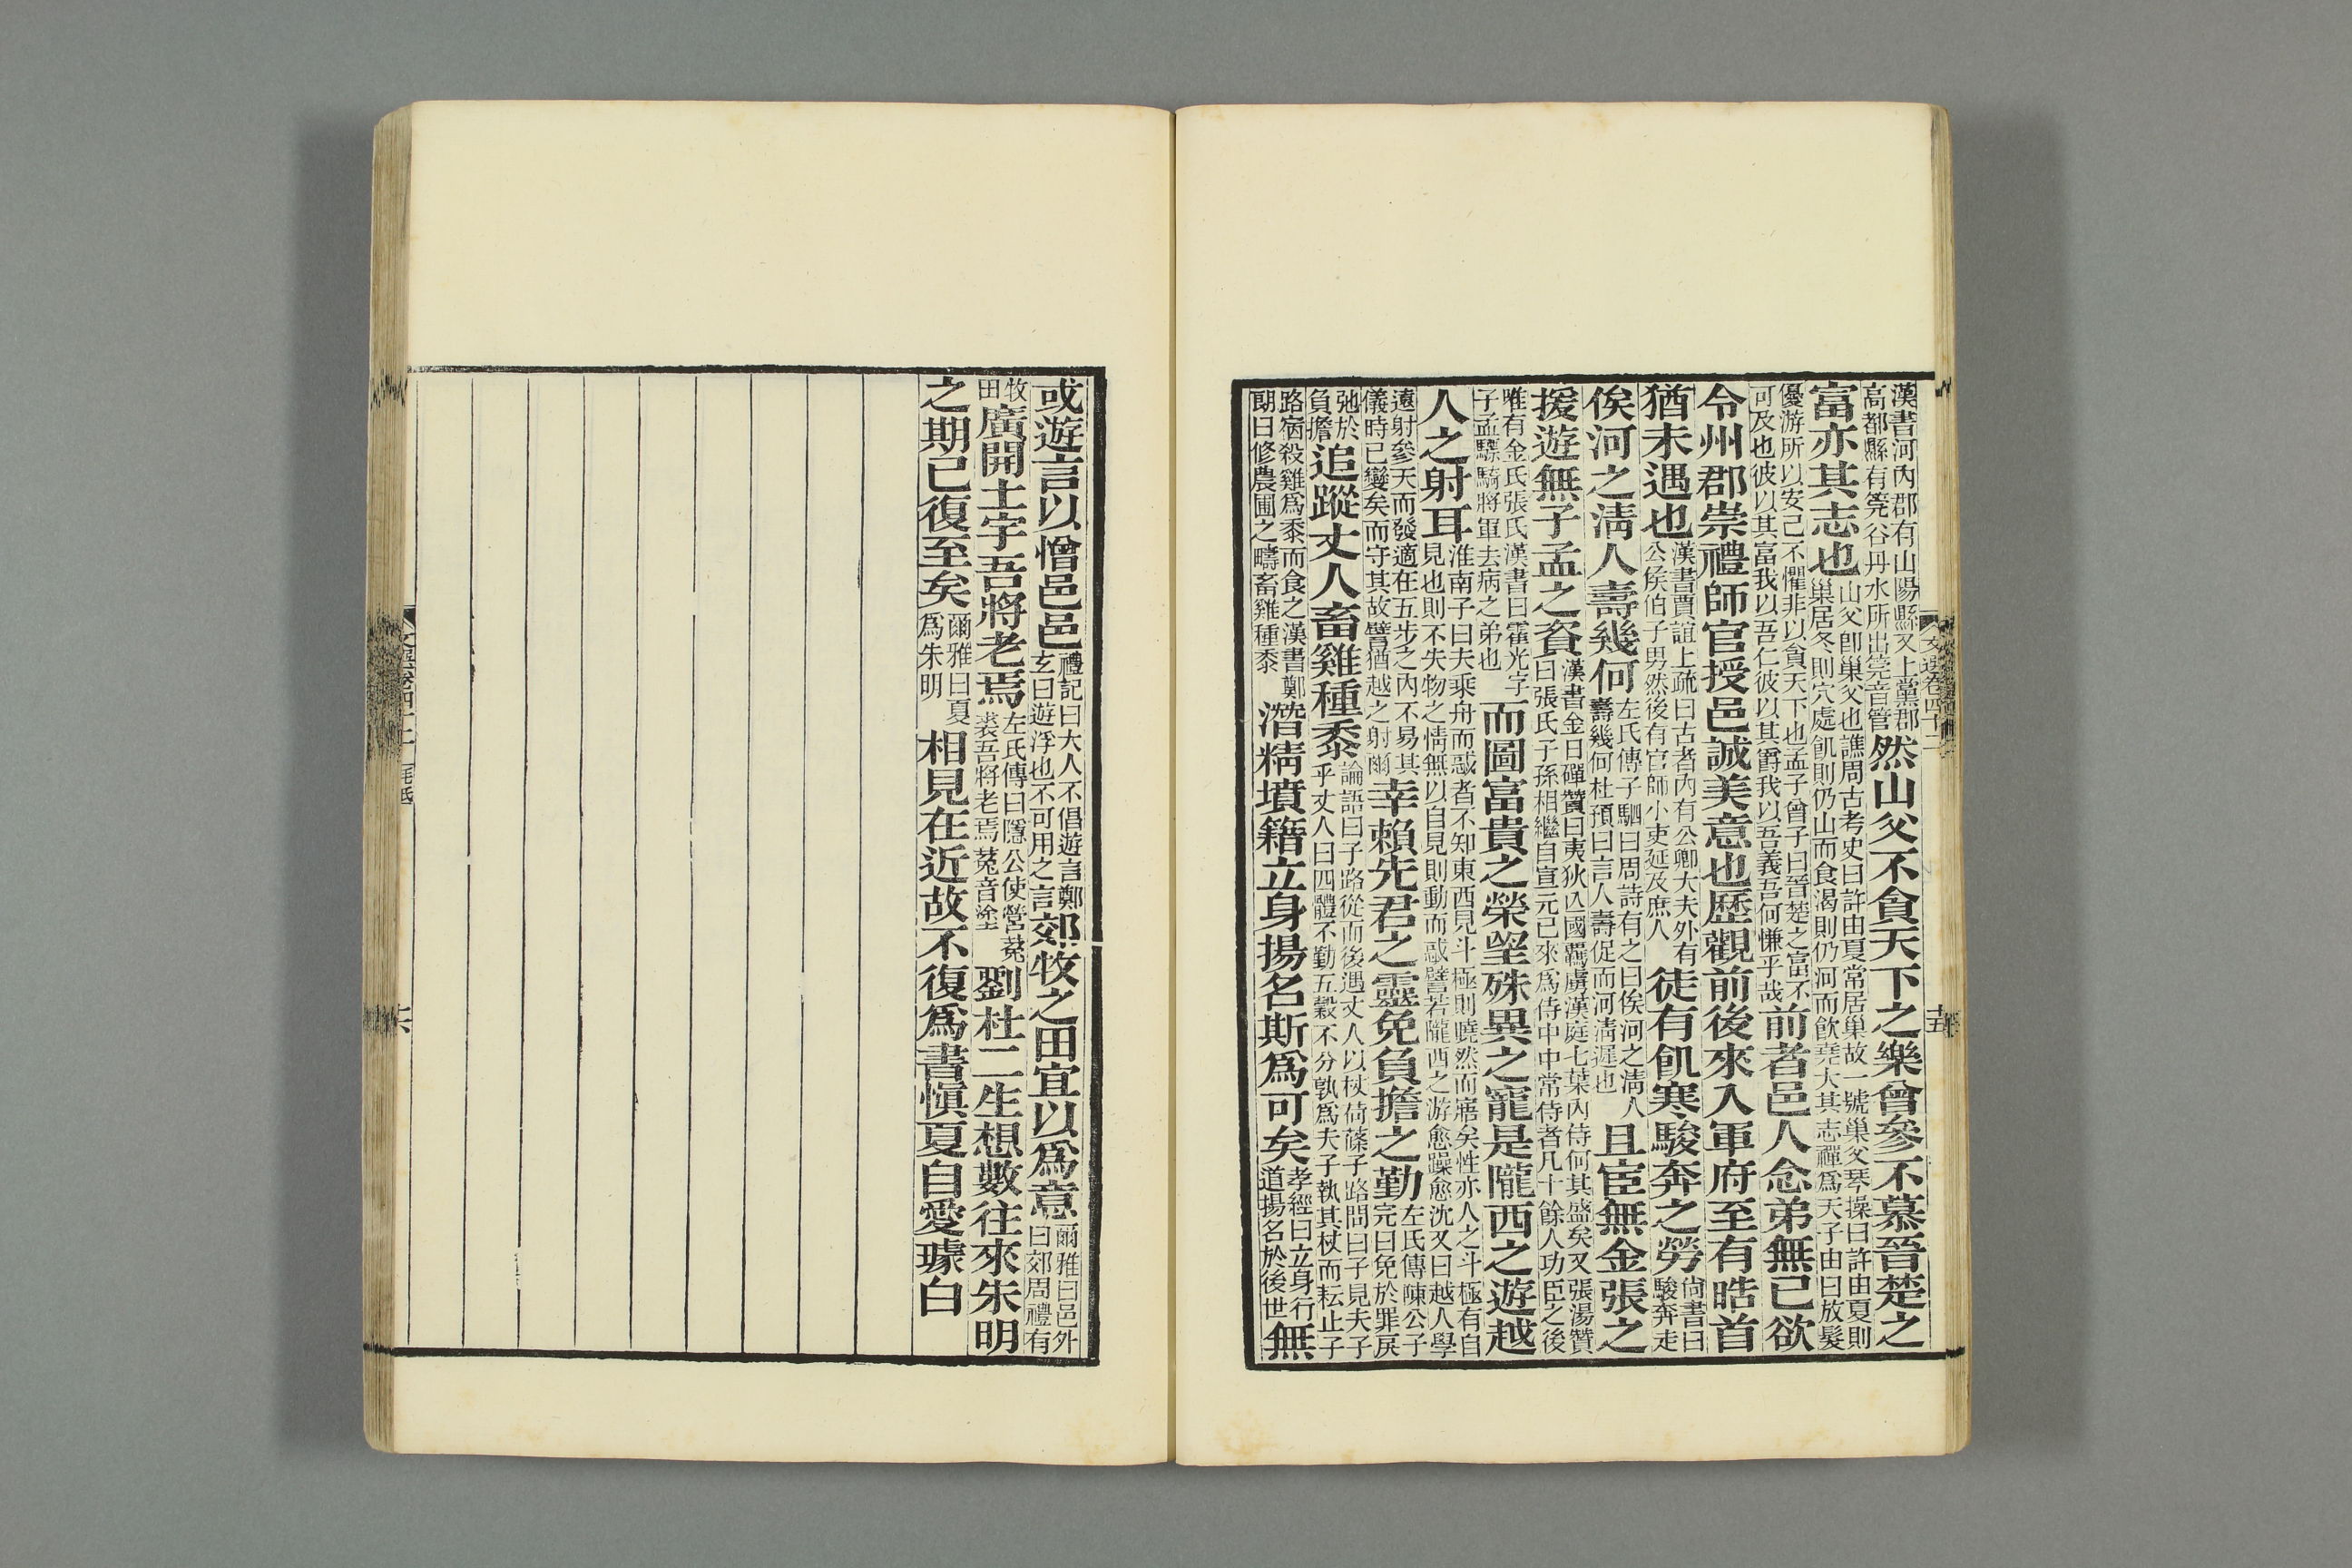 文選卷四十二
十五
漢書河內郡有山陽縣又上黨郡高都縣有筦谷丹水所出筦音管然山父不貪天下之樂曾參不慕晉楚之
富亦其志也山父卽巢父也譙周古考史曰許由夏常居巢故一號巢父琴操曰許由夏則巢居冬則穴處飢則仍山而食渴則仍河而飲堯大其志禪爲天子由曰放髮
優游所以安己不懼非以貪天下也孟子曾子曰晉楚之富不可及也彼以其富我以吾仁彼以其爵我以吾義吾何慊乎哉前者邑人念弟無已欲
令州郡崇禮師官授邑誠美意也歷觀前後來入軍府至有皓首
猶未遇也漢書賈誼上疏曰古者內有公卿大夫外有公侯伯子男然後有官師小吏延及庶人徒有飢寒駿奔之勞尙書曰駿奔走
俟河之淸人壽幾何左氏傳子駟曰周詩有之曰俟河之淸人壽幾何杜預曰言人壽促而河淸遲也且宦無金張之
援遊無子孟之資漢書金日磾贊曰夷狄亾國羈虜漢庭七葉內侍何其盛矣又張湯贊曰張氏子孫相繼自宣元已來爲侍中中常侍者凡十餘人功臣之後
唯有金氏張氏漢書曰霍光字子孟驃騎將軍去病之弟也而圖富貴之榮望殊異之寵是隴西之遊越
人之射耳淮南子曰夫乘舟而惑者不知東西見斗極則曉然而寤矣性亦人之斗極有自見也則不失物之情無以自見則動而惑譬若隴西之游愈躁愈沈又曰越人學
遠射參天而發適在五步之內不易其儀時已變矣而守其故譬猶越之射爾幸賴先君之靈免負擔之勤左氏傳陳公子完曰免於罪戾
弛於負擔追蹤丈人畜雞種黍論語曰子路從而後遇丈人以杖荷蓧子路問曰子見夫子乎丈人曰四體不勤五穀不分孰爲夫子執其杖而耘止子
路宿殺雞爲黍而食之漢書鄭朗曰修農圃之疇畜雞種黍潛精墳籍立身揚名斯爲可矣孝經曰立身行道揚名於後世無
或遊言以憎邑邑禮記曰大人不倡遊言鄭玄曰遊浮也不可用之言郊牧之田宜以爲意爾雅曰邑外曰郊周禮有
牧田廣開土宇吾將老焉左氏傳曰隱公使營菟裘吾將老焉菟音塗劉杜二生想數往來朱明
之期已復至矣爾雅曰夏爲朱明相見在近故不復爲書愼夏自愛璩白
文選卷四十二
十六